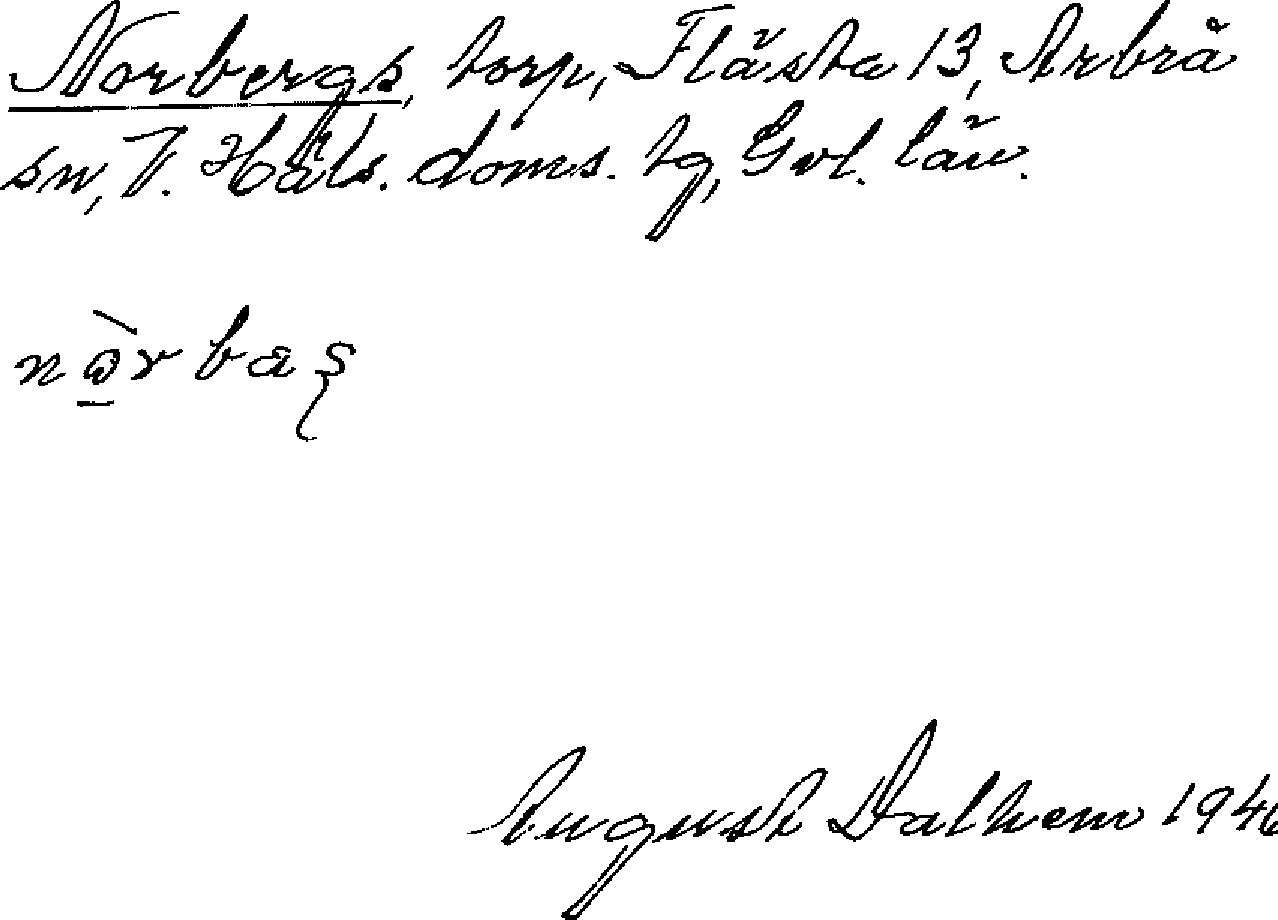 Norbergs, torp, Flästa 13, Arbrå
sn, V. Häls. doms. tg, Gvl. län.
nòrbaʂ
August Dalhem 1946